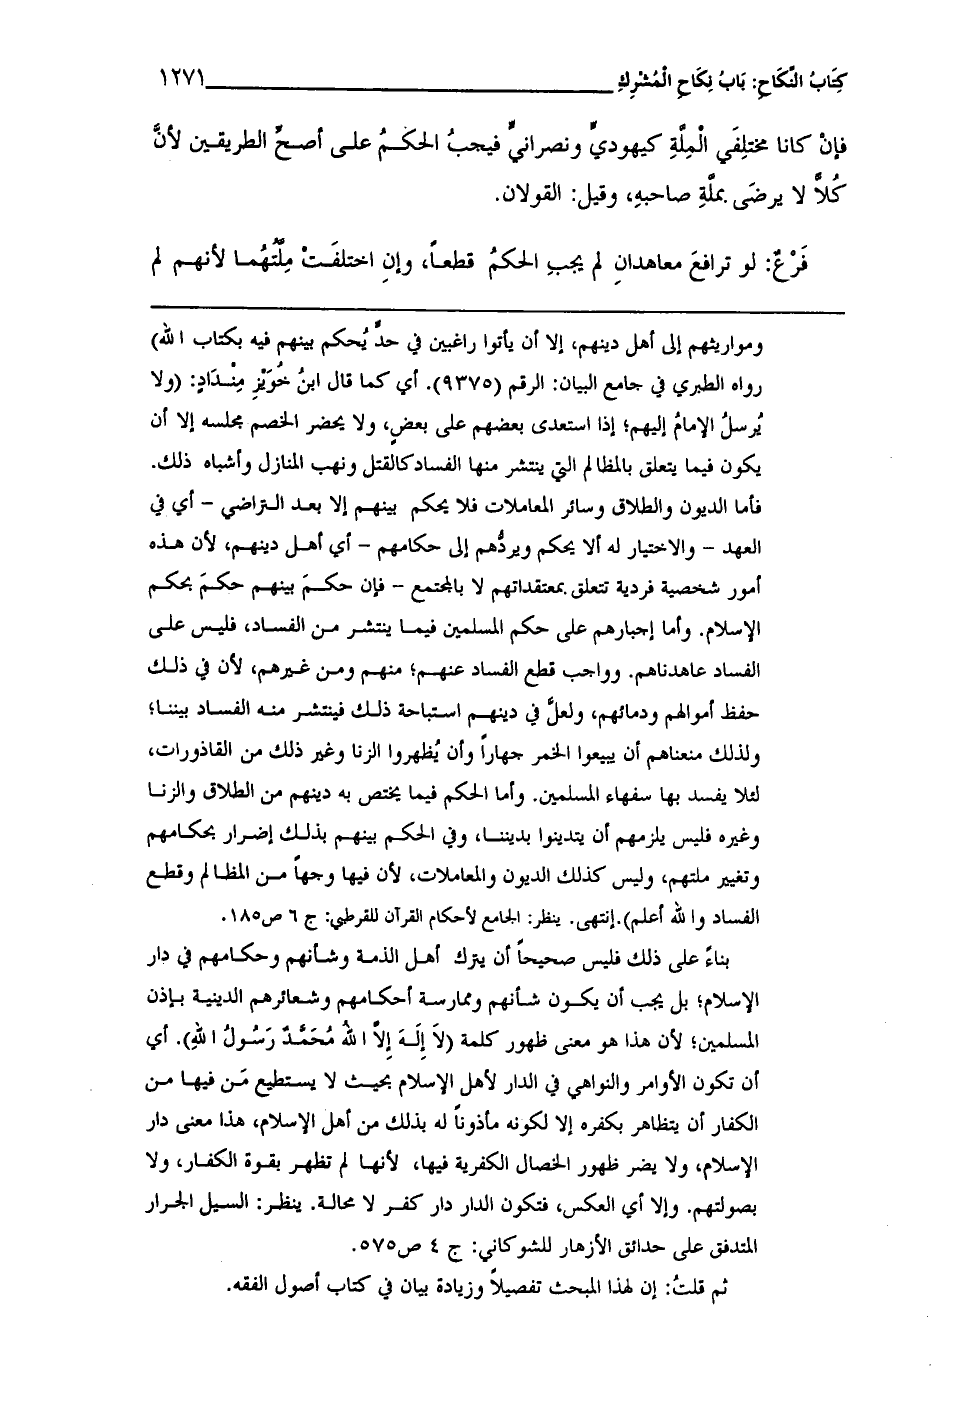 كِتَابُ النِّكَاحِ: بَابُ نِكَاحِ الْمُشْرِكِ ١٢٧١
فإنْ كانا مختلِفَي الْمِلَّةِ كيهوديٍّ ونصرانيٍّ فيجبُ الحكمُ على أصحِّ الطريقين لأنَّ
كُلاًّ لا يرضَى بملَّةِ صاحبهِ، وقيل: القولان.
فَرْعٌ: لو ترافعَ معاهدانِ لم يجبِ الحكمُ قطعاً، وإنِ اختلفَتْ مِلَّتُهُما لأنهم لم
ومواريثهم إلى أهل دينهم، إلا أن يأتوا راغبين في حدٍّ يُحكم بينهم فيه بكتاب الله)
رواه الطبري في جامع البيان: الرقم (٩٣٧٥). أي كما قال ابنُ خُوَيْزِ مِنْدَادٍ: (ولا
يُرسلُ الإمامُ إليهم؛ إذا استعدى بعضهم على بعضٍ، ولا يحضر الخصم مجلسه إلا أن
يكون فيما يتعلق بالمظالم التي ينتشر منها الفساد كالقتل ونهب المنازل وأشباه ذلك.
فأما الديون والطلاق وسائر المعاملات فلا يحكم بينهم إلا بعد التراضي – أي في
العهد – والاختيار له ألا يحكم ويردُّهم إلى حكامهم – أي أهل دينهم، لأن هذه
أمور شخصية فردية تتعلق بمعتقداتهم لا بالمجتمع – فإن حكمَ بينهم حكمَ بحكم
الإسلام. وأما إجبارهم على حكم المسلمين فيما ينتشر من الفساد، فليس على
الفساد عاهدناهم. وواجب قطع الفساد عنهم؛ منهم ومن غيرهم، لأن في ذلك
حفظ أموالهم ودمائهم، ولعلَّ في دينهم استباحة ذلك فينتشر منه الفساد بيننا؛
ولذلك منعناهم أن يبيعوا الخمر جهاراً وأن يُظهروا الزنا وغير ذلك من القاذورات،
لئلا يفسد بها سفهاء المسلمين. وأما الحكم فيما يختص به دينهم من الطلاق والزنا
وغيره فليس يلزمهم أن يتدينوا بديننا، وفي الحكم بينهم بذلك إضرار بحكامهم
وتغيير ملتهم، وليس كذلك الديون والمعاملات، لأن فيها وجهاً من المظالم وقطع
الفساد والله أعلم).إنتهى. ينظر: الجامع لأحكام القرآن للقرطبي: ج ٦ ص١٨٥.
بناءً على ذلك فليس صحيحاً أن يترك أهل الذمة وشأنهم وحكامهم في دار
الإسلام؛ بل يجب أن يكون شأنهم وممارسة أحكامهم وشعائرهم الدينية بإذن
المسلمين؛ لأن هذا هو معنى ظهور كلمة (لاَ إِلَهَ إِلاَّ اللهُ مُحَمَّدٌ رَسُولُ اللهِ). أي
أن تكون الأوامر والنواهي في الدار لأهل الإسلام بحيث لا يستطيع مَن فيها من
الكفار أن يتظاهر بكفره إلا لكونه مأذوناً له بذلك من أهل الإسلام، هذا معنى دار
الإسلام، ولا يضر ظهور الخصال الكفرية فيها، لأنها لم تظهر بقوة الكفار، ولا
بصولتهم. وإلا أي العكس، فتكون الدار دار كفر لا محالة. ينظر: السيل الجرار
المتدفق على حدائق الأزهار للشوكاني: ج ٤ ص٥٧٥.
ثم قلتُ: إن لهذا المبحث تفصيلاً وزيادة بيان في كتاب أصول الفقه.